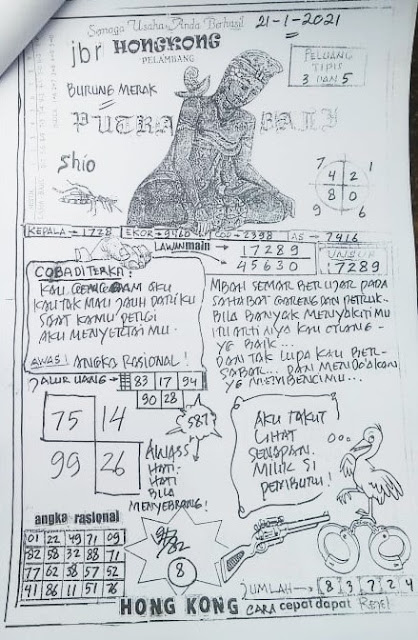 Semoga Usaha Anda Berhasil
21-1-2021
jbr HONGKONG
PELAMBANG
PELUANG
TIPIS
3 DAN 5
BURUNG MERAK
PUTRA BALI
Shio
7 1
4 2
8 0
9 6
KEPALA → 1728 EKOR → 9460 COP → 2398 AS → 7416
LAWAN main → 17289
45630
17289
COBA DITERKA :
KAU GENGGAM AKU
KAU TAK MAU JAUH DARIKU
SAAT KAMU PERGI
AKU MENYERTAIMU.
AWAS! ANGKA RASIONAL!
MBAH SEMAR BERUJAR PADA
SAHABAT GARENG DAN PETRUK.
BILA BANYAK MENYAKITIMU
ITU ARTINYA KAU ORANG-
YG BAIK...
DAN TAK LUPA KAU BER-
SABAR... DAN MENDO'AKAN
YG MEMBENCIMU...
JALUR UANG → 83 17 94
90 28
75 14
99 26
587
AWASS
HATI-
HATI
BILA
MENYEBRANG!
AKU TAKUT
LIHAT
SENAPAN.
MILIK SI
PEMBURU!
angka rasional
01 22 49 71 09
82 58 32 88 71
77 62 58 57 52
41 86 11 51 76
8
JUMLAH → 8 3 7 2 4
HONG KONG
CARA cepat dapat